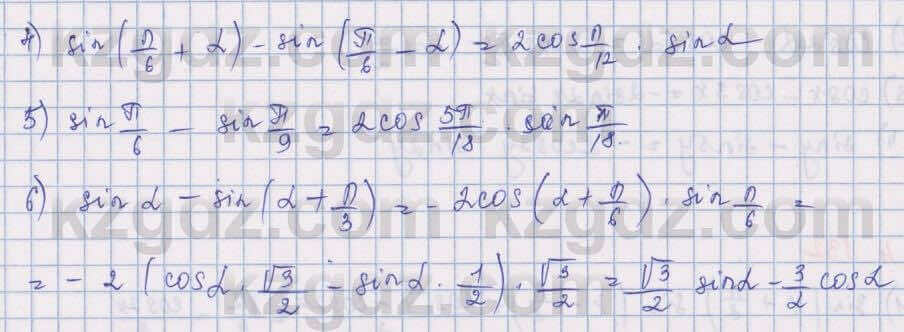 4) sin(π/6 + α) - sin(π/6 - α) = 2cos π/12 · sin α
5) sin π/6 - sin π/9 = 2cos 5π/18 · sin π/18.
6) sin α - sin(α + π/3) = - 2cos(α + π/6) · sin π/6 =
= - 2 (cos α · √3/2 - sin α · 1/2) · √3/2 = √3/2 sin α - 3/2 cos α
kzgdz.com
kzgdz.com
kzgdz.com